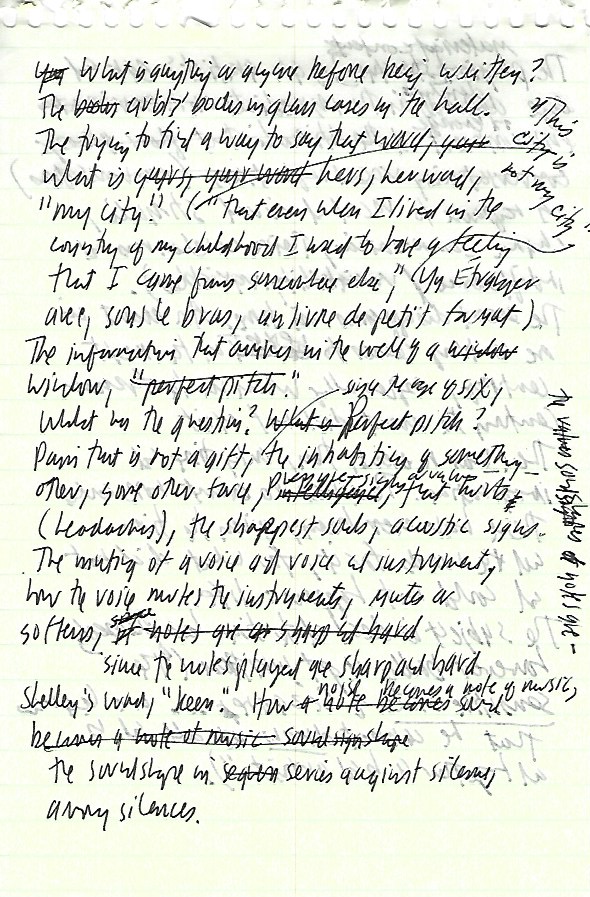 What is anything or anyone before being written?
The bodies artists' bodies in glass cases in the hall.
The trying to find a way to say that word, yours
what is yours, your word hers, her word,
"my city." ("that even when I lived in the
country of my childhood I used to have a feeling
that I came from somewhere else," (Un Étranger
avec, sous le bras, un livre de petit format).
"This
city is
not my
city
The information that arrives in the well of a window
window, "perfect pitch."
since the age of six,
What was the question? What is Perfect pitch?
Pain that is not a gift, the inhabiting of something
other, some other force, that hurts
(headaches), the sharpest sounds, acoustic signs.
The muting of a voice and voice as instrument,
how the voice mutes the instruments, mutes or
softens, since if notes are so sharp and hard
since the notes played are sharp and hard
Shelley's word, "keen." How a note becomes sound
noise becomes a note of music,
becomes a note of music sound sign shape
the sound shape in series against silence,
among silences.